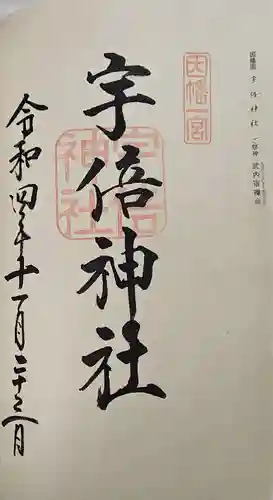 因幡國 宇倍神社 ご祭神 武内宿禰命
因幡一宮
宇倍神社
宇倍神社
令和四年十一月二十三日